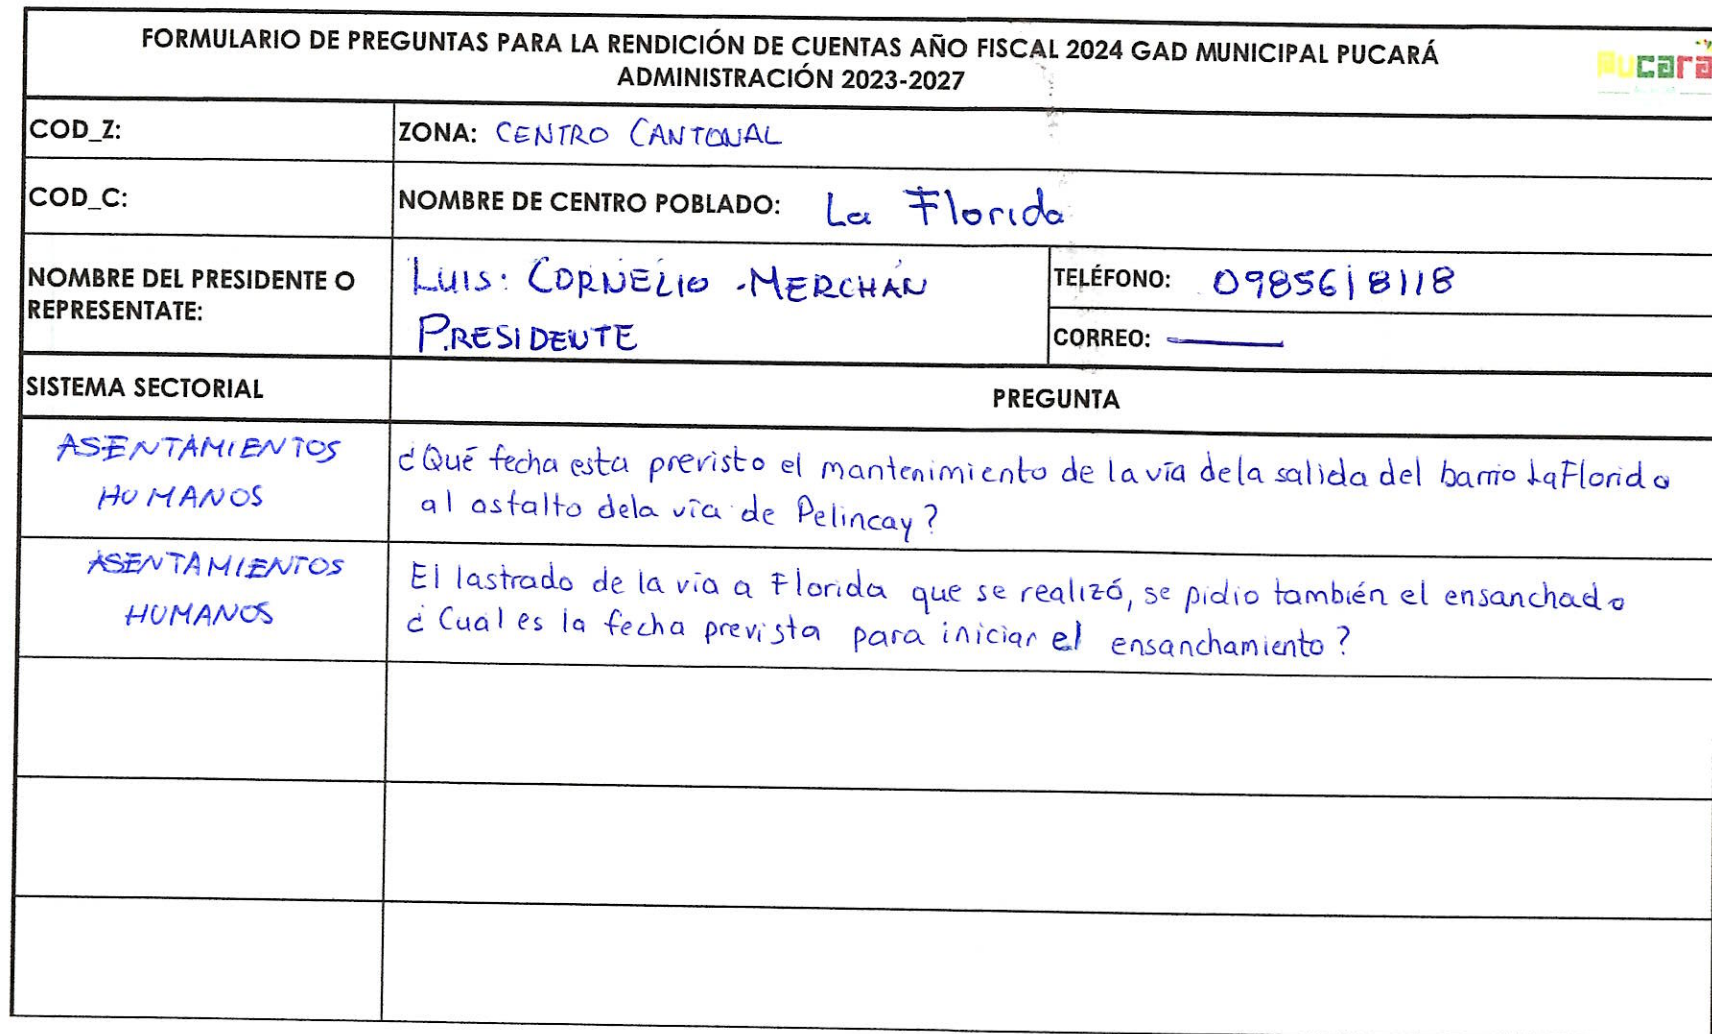 FORMULARIO DE PREGUNTAS PARA LA RENDICIÓN DE CUENTAS AÑO FISCAL 2024 GAD MUNICIPAL PUCARÁ
ADMINISTRACIÓN 2023-2027
Pucará
COD_Z:
ZONA: CENTRO CANTONAL
COD_C:
NOMBRE DE CENTRO POBLADO: La Florida
NOMBRE DEL PRESIDENTE O
REPRESENTATE:
LUIS: CORNELIO -MERCHÁN
PRESIDENTE
TELÉFONO: 0985618118
CORREO:
SISTEMA SECTORIAL
PREGUNTA
ASENTAMIENTOS
HUMANOS
¿Qué fecha esta previsto el mantenimiento de la vía dela salida del barrio La Florida
al asfalto dela vía de Pelincay?
ASENTAMIENTOS
HUMANOS
El lastrado de la vía a Florida que se realizó, se pidio también el ensanchado
¿Cuál es la fecha prevista para iniciar el ensanchamiento?